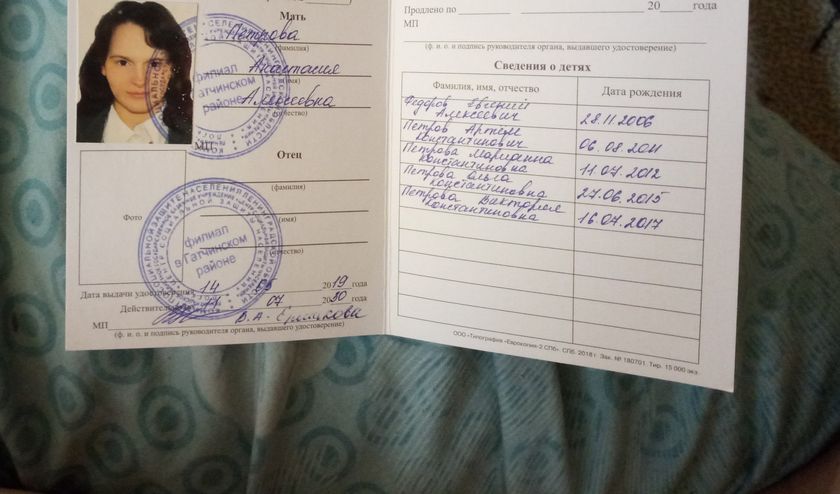 Мать
Петрова
(фамилия)
Анастасия
(имя)
Алексеевна
(отчество)
МП
Отец
(фамилия)
Фото
(имя)
(отчество)
филиал
в Гатчинском
районе
филиал
в Гатчинском
районе
Дата выдачи удостоверения 14 05 2019 года
Действительно 11 07 2030 года
В.А.
МП
(ф. и. о. и подпись руководителя органа, выдавшего удостоверение)
Продлено по 20 года
МП
(ф. и. о. и подпись руководителя органа, выдавшего удостоверение)
Сведения о детях
Фамилия, имя, отчество Дата рождения
Федоров Евгений
Алексеевич 28.11.2006
Петров Артем
Константинович 06.08.2011
Петрова Марианна
Константиновна 11.07.2012
Петрова Ольга
Константиновна 27.06.2015
Петрова Виктория
Константиновна 16.07.2017
ООО «Типография «Еврокопия-2 СПб». СПб. 2018 г. Зак. № 180701. Тир. 15 000 экз.